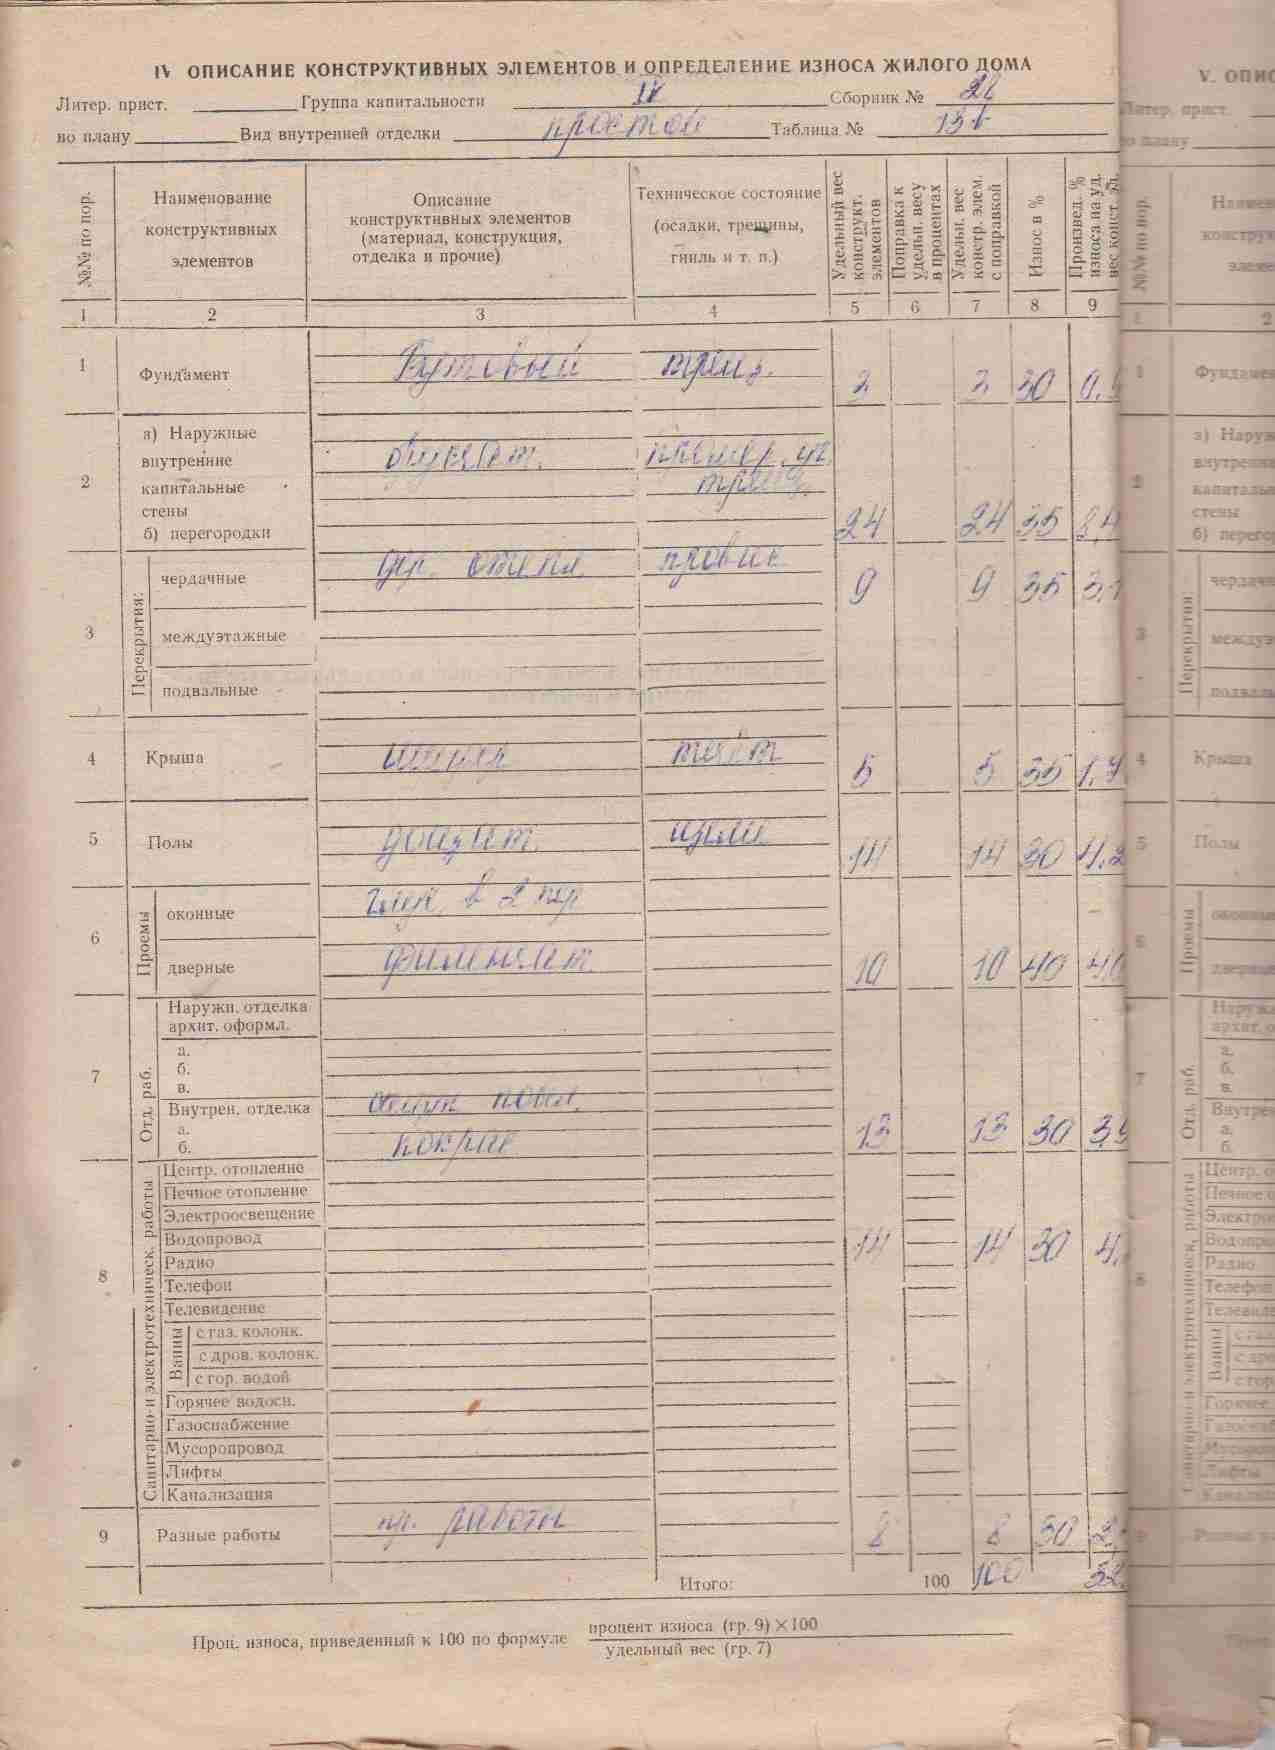 IV ОПИСАНИЕ КОНСТРУКТИВНЫХ ЭЛЕМЕНТОВ И ОПРЕДЕЛЕНИЕ ИЗНОСА ЖИЛОГО ДОМА
Литер. прист. Группа капитальности IV Сборник № 28
по плану Вид внутренней отделки простой Таблица № 13в
№№ по пор.
Наименование
конструктивных
элементов
Описание
конструктивных элементов
(материал, конструкция,
отделка и прочие)
Техническое состояние
(осадки, трещины,
гниль и т. п.)
Удельный вес
конструкт.
элементов
Поправка к
удельн. весу
в процентах
Удельн. вес
констр. элем.
с поправкой
Износ в %
Произвед. %
износа на уд.
вес конст. эл.
1 2 3 4 5 6 7 8 9
1 Фундамент Бутовый трещ. 3 3 30 0,9
2 а) Наружные
внутренние
капитальные
стены
б) перегородки
трещ. 24 24 35 8,4
3 Перекрытия:
чердачные дер. отепл. провис 9 9 35 3,1
междуэтажные
подвальные
4 Крыша шифер 5 5 35 1,7
5 Полы дощат. щели 14 14 30 4,2
6 Проемы
оконные в 2 пер
дверные филенчат. 10 10 40 4,0
7 Отд. раб.
Наружн. отделка
архит. оформл.
а.
б.
в.
Внутрен. отделка
а.
б.
штук побел.
покрас 13 13 30 3,9
8 Санитарно- и электротехническ. работы
Центр. отопление
Печное отопление
Электроосвещение
Водопровод 14 14 30 4,
Радио
Телефон
Телевидение
Ванны
с газ. колонк.
с дров. колонк.
с гор. водой
Горячее водосн.
Газоснабжение
Мусоропровод
Лифты
Канализация
9 Разные работы пр. работы 8 8 30 2,
Итого: 100 100 32,
Проц. износа, приведенный к 100 по формуле процент износа (гр. 9) × 100
удельный вес (гр. 7)
V. ОПИС
Литер. прист.
по плану
№№ по пор.
Наимен
конструк
элеме
1 2
1 Фундамен
2 а) Наруж
внутренни
капитальн
стены
б) перегор
3 Перекрытия
чердачн
междуэт
подваль
4 Крыша
5 Полы
6 Проемы
оконные
дверные
7 Отд. раб.
Наружн
архит. о
а.
б.
в.
Внутрен
а.
б.